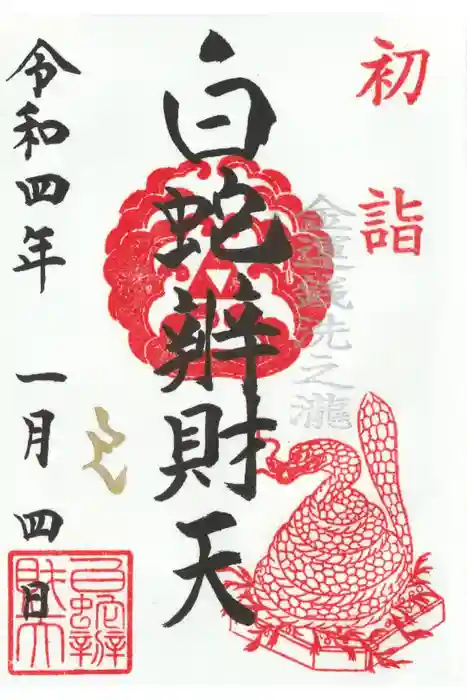 初詣
金運銭洗之瀧
白蛇辨財天
令和四年 一月 四日
白蛇辨
財天